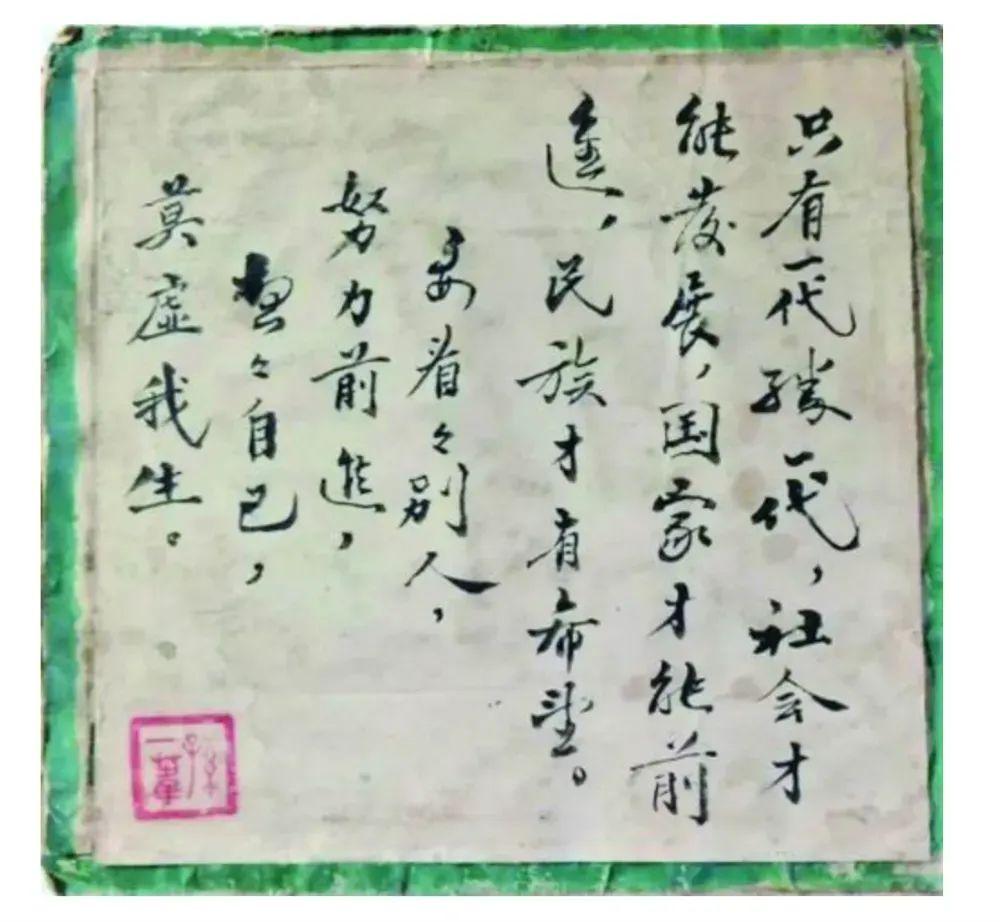 只有一代勝一代，社会才
能發展，国家才能前
進，民族才有希望。
要看々别人，
努力前進，
想々自己，
莫虚我生。
孫一葦